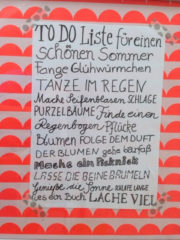 TO DO Liste für einen
schönen Sommer
Fange Glühwürmchen
TANZE IM REGEN
Mache Seifenblasen SCHLAGE
PURZELBÄUME Finde einen
Regenbogen Pflücke
Blumen FOLGE DEM DUFT
DER BLUMEN gehe barfuß
Mache ein Picknick
LASSE DIE BEINE BAUMELN
Genieße die Sonne SCHLAFE LANGE
Lies ein Buch LACHE VIEL